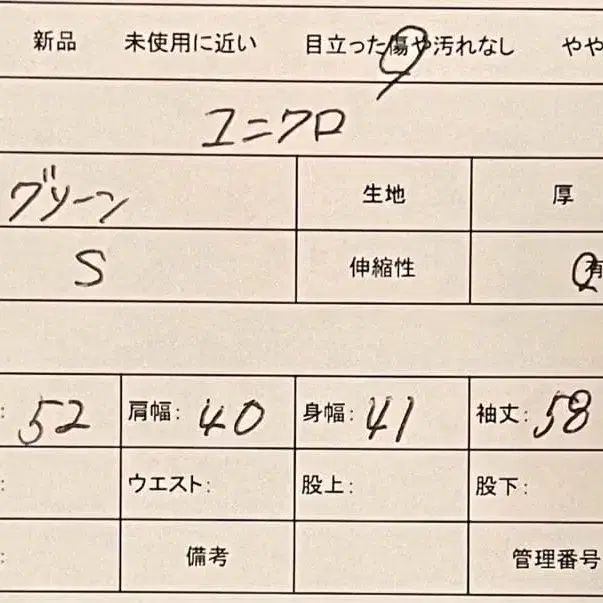 新品 未使用に近い 目立った傷や汚れなし やや
ユニクロ
グリーン 生地 厚
S 伸縮性 有
: 52 肩幅: 40 身幅: 41 袖丈: 58
: ウエスト: 股上: 股下:
: 備考 管理番号